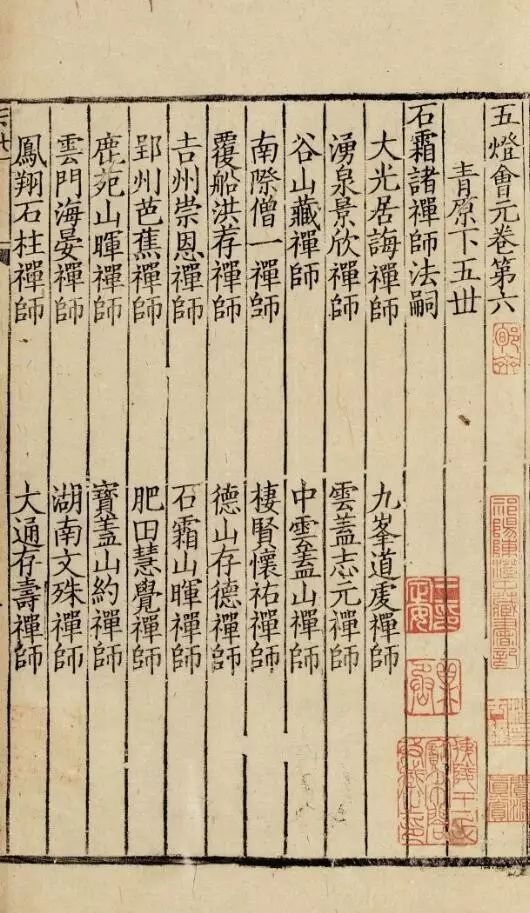 五燈會元卷第六
青原下五世
石霜諸禪師法嗣
大光居誨禪師
九峯道虔禪師
湧泉景欣禪師
雲蓋志元禪師
谷山藏禪師
中雲蓋山禪師
南際僧一禪師
棲賢懷祐禪師
覆船洪荐禪師
德山存德禪師
吉州崇恩禪師
石霜山暉禪師
郢州芭蕉禪師
肥田慧覺禪師
鹿苑山暉禪師
寶蓋山約禪師
雲門海晏禪師
湖南文殊禪師
鳳翔石柱禪師
大通存壽禪師
祁陽陳澄中藏書記